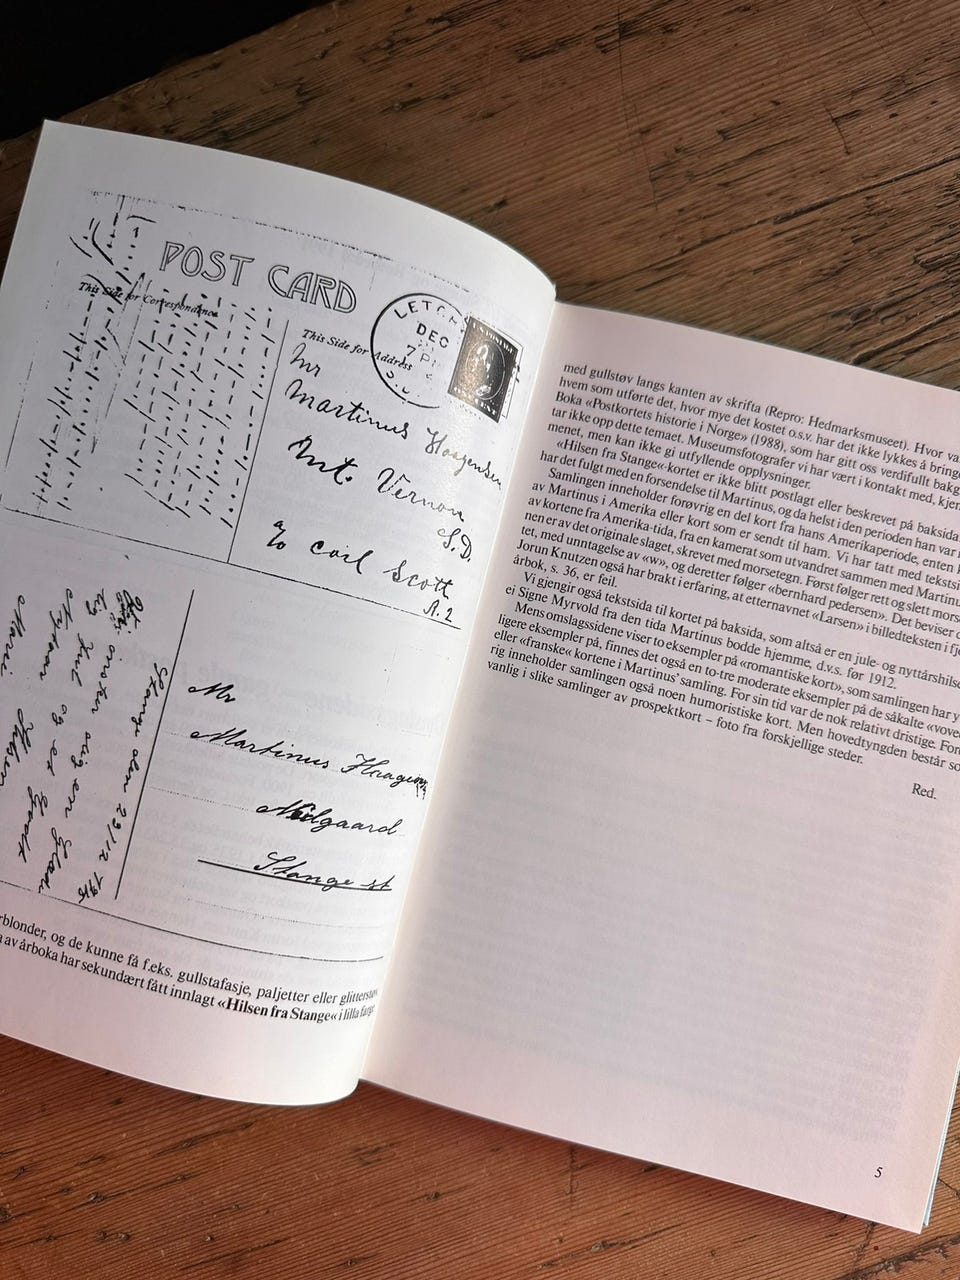 POST CARD
This Side for Correspondence
This Side for Address
DEC
7 P
Mr
Martinus Haagensen
Mt. Vernon
S.D.
% Carl Scott
R. 2
Stange den 23/12 1915
ønsker dig en Glad
Jul og et Godt
Nytaar
Mr
Martinus Haagen
Midgaard
Stange st
rblonder, og de kunne få f.eks. gullstafasje, paljetter eller glitterstøv
av årboka har sekundært fått innlagt «Hilsen fra Stange« i lilla farge
med gullstøv langs kanten av skrifta (Repro: Hedmarksmuseet). Hvor va
hvem som utførte det, hvor mye det kostet o.s.v. har det ikke lykkes å bring
Boka «Postkortets historie i Norge» (1988), som har gitt oss verdifullt bakg
tar ikke opp dette temaet. Museumsfotografer vi har vært i kontakt med, kjen
menet, men kan ikke gi utfyllende opplysninger.
«Hilsen fra Stange«-kortet er ikke blitt postlagt eller beskrevet på baksida
har det fulgt med en forsendelse til Martinus, og da helst i den perioden han var i
Samlingen inneholder forøvrig en del kort fra hans Amerikaperiode, enten
av Martinus i Amerika eller kort som er sendt til ham. Vi har tatt med tekstsi
av kortene fra Amerika-tida, fra en kamerat som utvandret sammen med Martinu
nen er av det originale slaget, skrevet med morsetegn. Først følger rett og slett mors
tet, med unntagelse av «w», og deretter følger «bernhard pedersen». Det beviser
Jorun Knutzen også har brakt i erfaring, at etternavnet «Larsen» i billedteksten i fj
årbok, s. 36, er feil.
Vi gjengir også tekstsida til kortet på baksida, som altså er en jule- og nyttårshilse
ei Signe Myrvold fra den tida Martinus bodde hjemme, d.v.s. før 1912.
Mens omslagssidene viser to eksempler på «romantiske kort», som samlingen har y
ligere eksempler på, finnes det også en to-tre moderate eksempler på de såkalte «vove
eller «franske« kortene i Martinus' samling. For sin tid var de nok relativt dristige. For
rig inneholder samlingen også noen humoristiske kort. Men hovedtyngden består so
vanlig i slike samlinger av prospektkort – foto fra forskjellige steder.
Red.
5